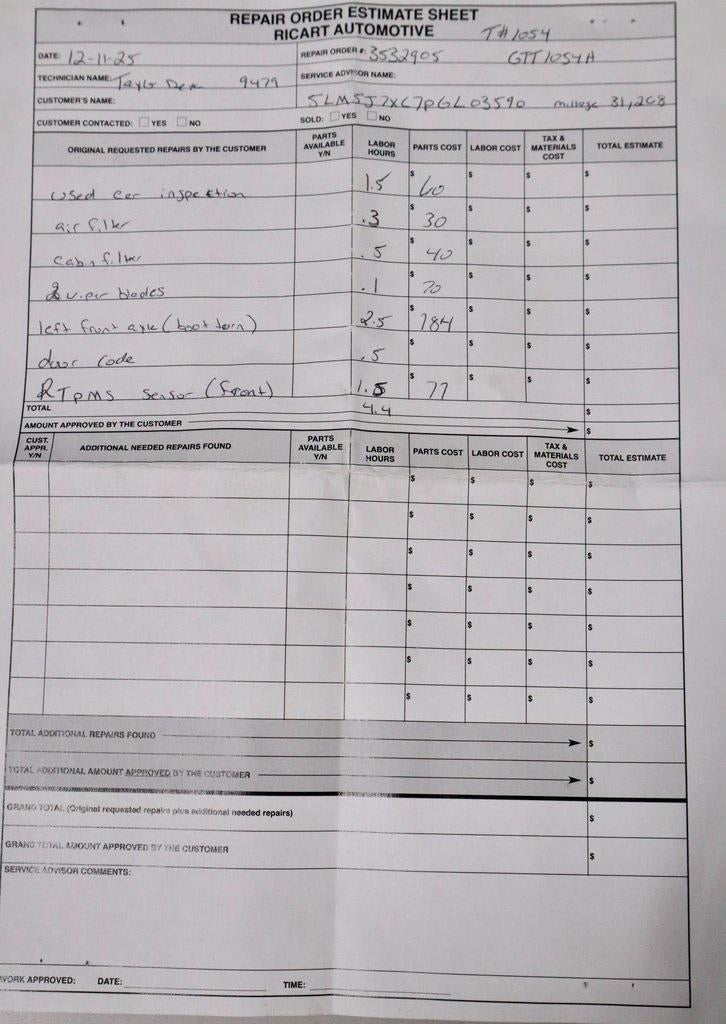 REPAIR ORDER ESTIMATE SHEET
RICART AUTOMOTIVE T#1054
DATE: 12-11-25 REPAIR ORDER #: 3532905 GTT1054A
TECHNICIAN NAME: 9479 SERVICE ADVISOR NAME:
CUSTOMER'S NAME: 5LM5J7XC7PGL03590 millage 31,268
CUSTOMER CONTACTED: YES NO SOLD: YES NO
ORIGINAL REQUESTED REPAIRS BY THE CUSTOMER PARTS AVAILABLE Y/N LABOR HOURS PARTS COST LABOR COST TAX & MATERIALS COST TOTAL ESTIMATE
used car inspection 1.5 $ 60 $ $ $
air filter .3 $ 30 $ $ $
cabin filter .5 $ 40 $ $ $
2 wiper blades .1 $ 70 $ $ $
left front axle (boot torn) 2.5 $ 784 $ $ $
door code .5 $ $ $ $
R TPMS Sensor (front) 1.5 $ 77 $ $ $
TOTAL 4.4 $
AMOUNT APPROVED BY THE CUSTOMER $
CUST. APPR. Y/N ADDITIONAL NEEDED REPAIRS FOUND PARTS AVAILABLE Y/N LABOR HOURS PARTS COST LABOR COST TAX & MATERIALS COST TOTAL ESTIMATE
$ $ $ $
$ $ $ $
$ $ $ $
$ $ $ $
$ $ $ $
$ $ $ $
$ $ $ $
TOTAL ADDITIONAL REPAIRS FOUND $
TOTAL ADDITIONAL AMOUNT APPROVED BY THE CUSTOMER $
GRAND TOTAL (Original requested repairs plus additional needed repairs) $
GRAND TOTAL AMOUNT APPROVED BY THE CUSTOMER $
SERVICE ADVISOR COMMENTS:
WORK APPROVED: DATE: TIME: